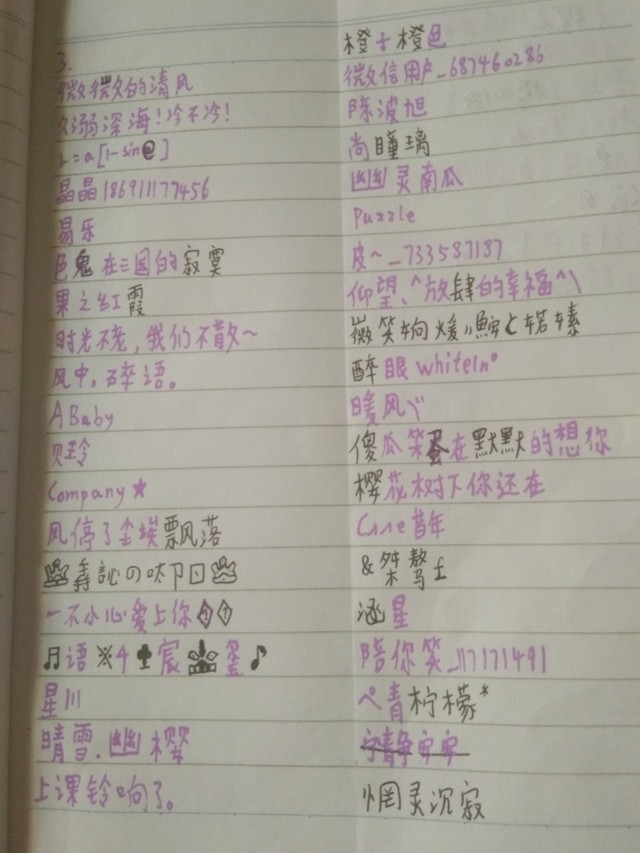 3.
微微的清风
久溺深海!冷不冷!
=a[1-sin
晶晶186911177456
易乐
色鬼在三国的寂寞
果之红霞
时光不老,我们不散~
风中,碎语。
ABaby
贝玲
Company★
风停了尘埃飘落
の
一不小心爱上你
♬语※4♣宸 ♪
星川
晴雪.幽樱
上课铃响了。
橙子橙色
微信用户_687460286
陈波旭
尚瞳璃
幽幽灵南瓜
Puzzle
皮~_733587187
仰望、^放肆的幸福^\
微笑
醉眼whiteln°
暖风
傻瓜笨蛋在默默的想你
樱花树下你还在
昔年
&
涵星
陪你笑_117171491
ぺ青柠檬*
宁静安安
惘灵沉寂